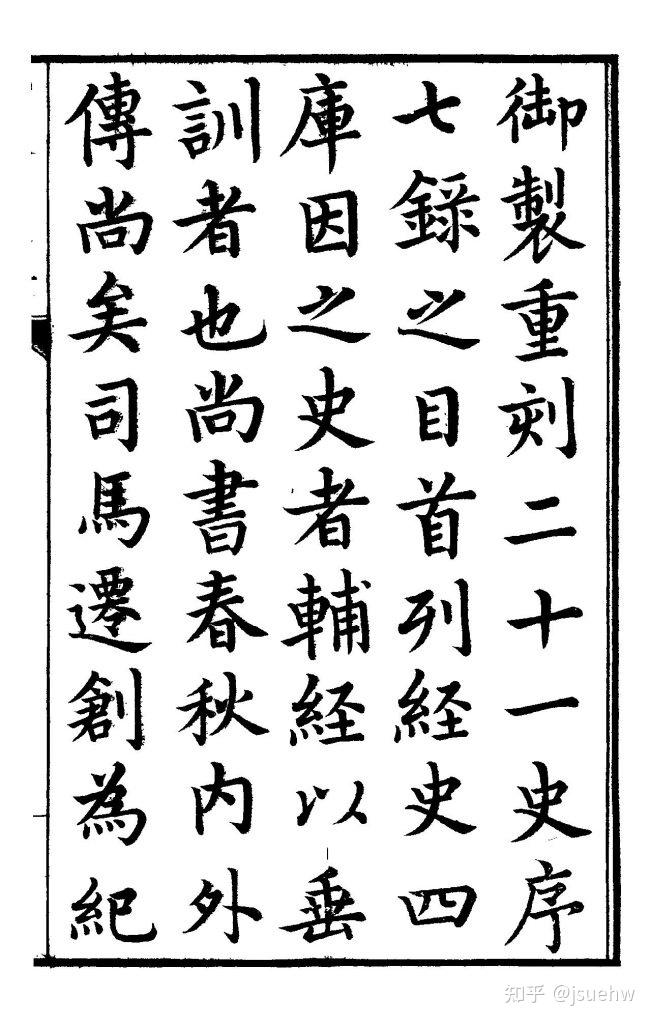 御製重刻二十一史序
七錄之目首列経史四
庫因之史者輔経以垂
訓者也尚書春秋内外
傳尚矣司馬遷創為紀
知乎 @jsuehw